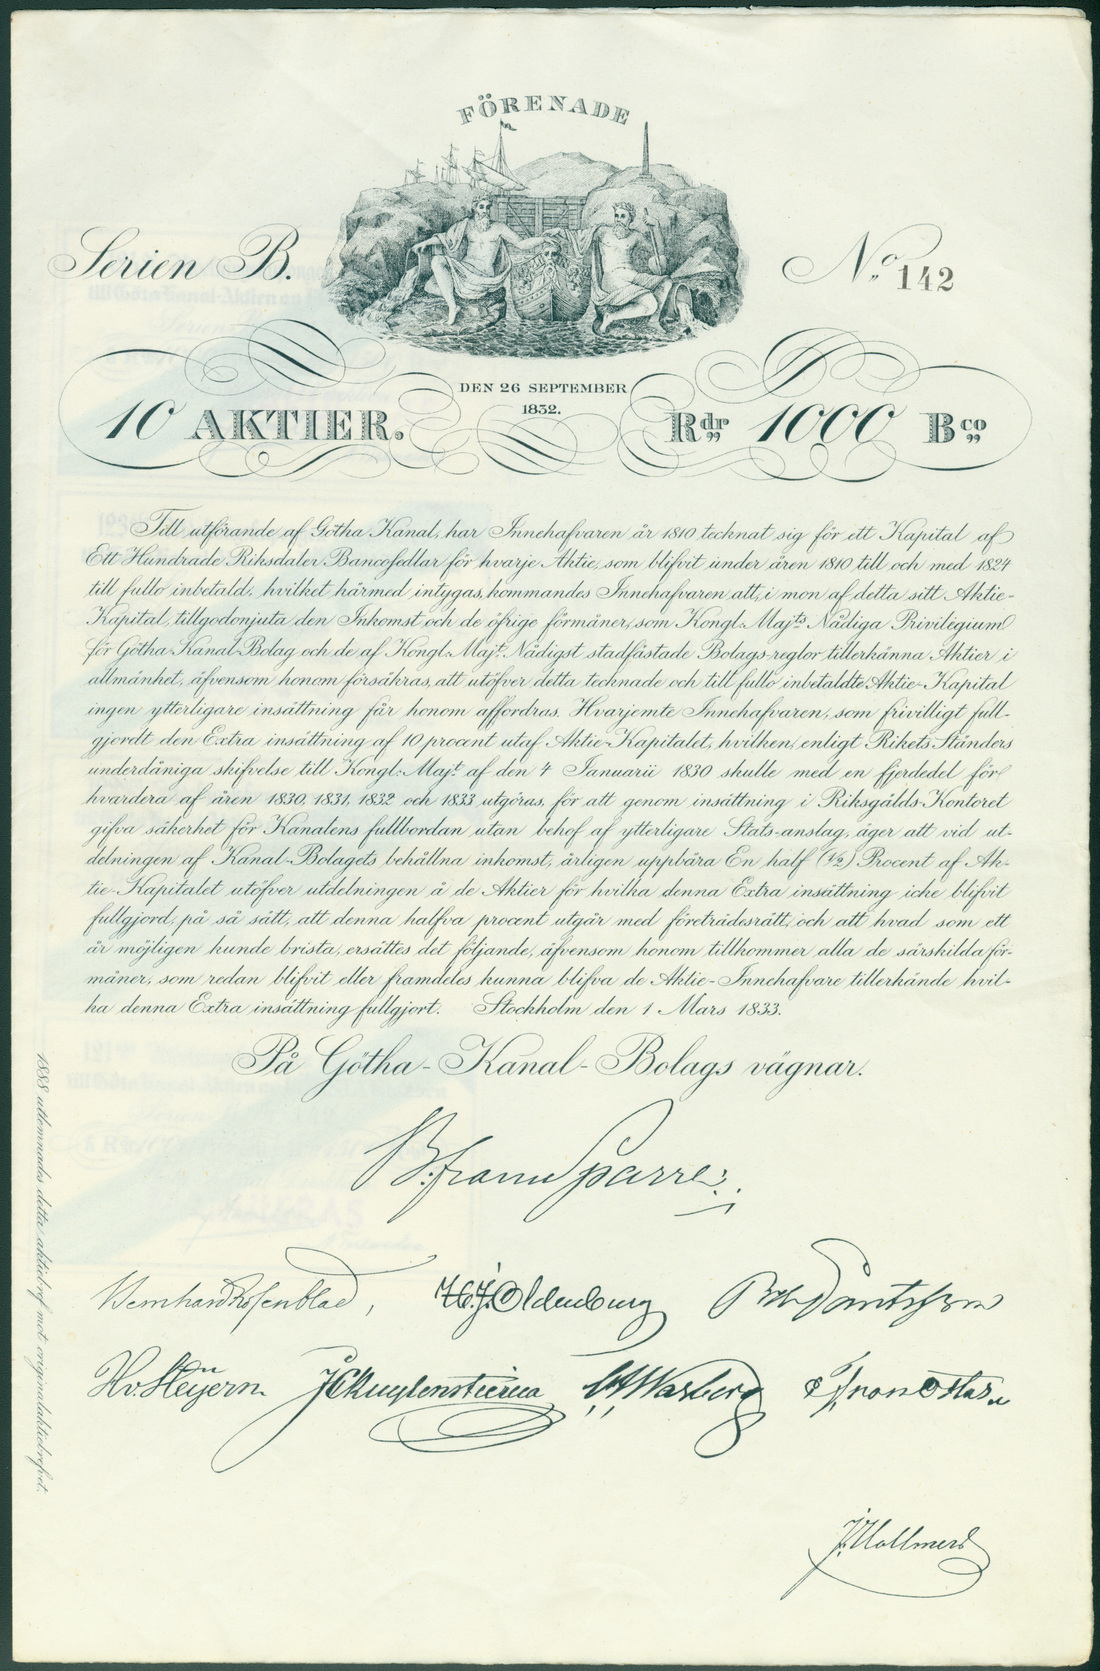 FÖRENADE
Serien B.
No. 142
DEN 26 SEPTEMBER
1832.
10 AKTIER.
Rdr 1000 Bco
Till utförande af Götha Kanal, har Innehafvaren år 1810 tecknat sig för ett Kapital af
Ett Hundrade Riksdaler Bancosedlar för hvarje Aktie, som blifvit under åren 1810 till och med 1824
till fullo inbetald, hvilket härmed intygas, kommandes Innehafvaren att, i mon af detta sitt Aktie-
Kapital, tillgodonjuta den Inkomst och de öfrige förmåner, som Kongl. Majts Nådiga Privilegium
för Götha Kanal-Bolag och de af Kongl. Majt. Nådigst stadfästade Bolags-reglor tillerkänna Aktier i
allmänhet, äfvensom honom försäkras, att utöfver detta tecknade och till fullo inbetaldte Aktie-Kapital
ingen ytterligare insättning får honom affordras. Hvarjemte Innehafvaren, som frivilligt full-
gjordt den Extra insättning af 10 procent utaf Aktie-Kapitalet, hvilken, enligt Rikets Ständers
underdåniga skrifvelse till Kongl. Majt. af den 4 Januarii 1830 skulle med en fjerdedel för
hvardera af åren 1830, 1831, 1832 och 1833 utgöras, för att genom insättning i Riksgälds-Kontoret
gifva säkerhet för Kanalens fullbordan utan behof af ytterligare Stats-anslag, äger att vid ut-
delningen af Kanal-Bolagets behållna inkomst, årligen uppbära En half (1/2) Procent af Ak-
tie-Kapitalet utöfver utdelningen å de Aktier för hvilka denna Extra insättning icke blifvit
fullgjord, på så sätt, att denna halfva procent utgår med företrädesrätt, och att hvad som ett
år möjligen kunde brista, ersättes det följande, äfvensom honom tillkommer alla de särskilda för-
måner, som redan blifvit eller framdeles kunna blifva de Aktie-Innehafvare tillerkände hvil-
ka denna Extra insättning fullgjort. Stockholm den 1 Mars 1833.
På Götha-Kanal-Bolags vägnar.
B. Franc Sparre
Bernhard Rosenblad,
H.J. Oldenburg
H v. Heijern
J C Kuylenstierna
Warberg
J. Hallmer
1888 utlemnades detta aktiebref mot originalaktiebrefvet.